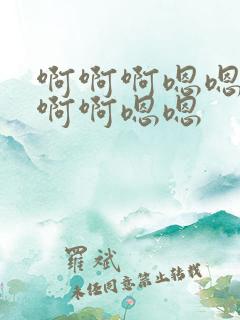 啊啊啊嗯嗯
啊啊嗯嗯
羅斌
未经同意禁止转载